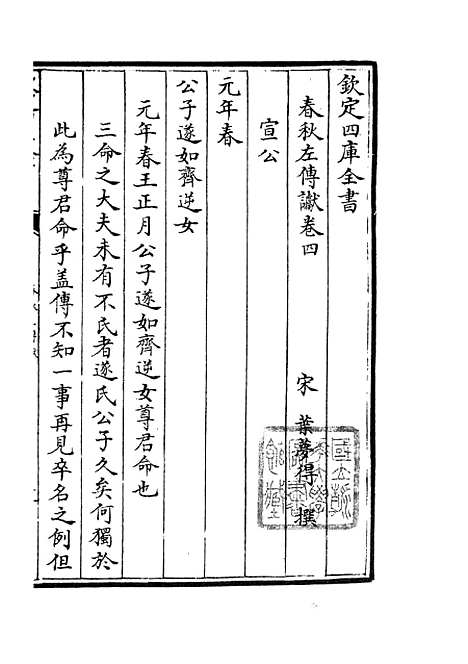 欽定四庫全書
春秋左傳讞卷四
宋 葉夢得 撰
宣公
元年春
公子遂如齊逆女
元年春王正月公子遂如齊逆女尊君命也
三命之大夫未有不氏者遂氏公子久矣何獨於
此為尊君命乎盖傳不知一事再見卒名之例但